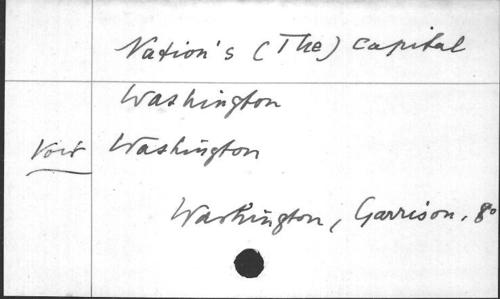 Nation's (The) capital
Washington
Voir Washington
Washington, Garrison, 8o